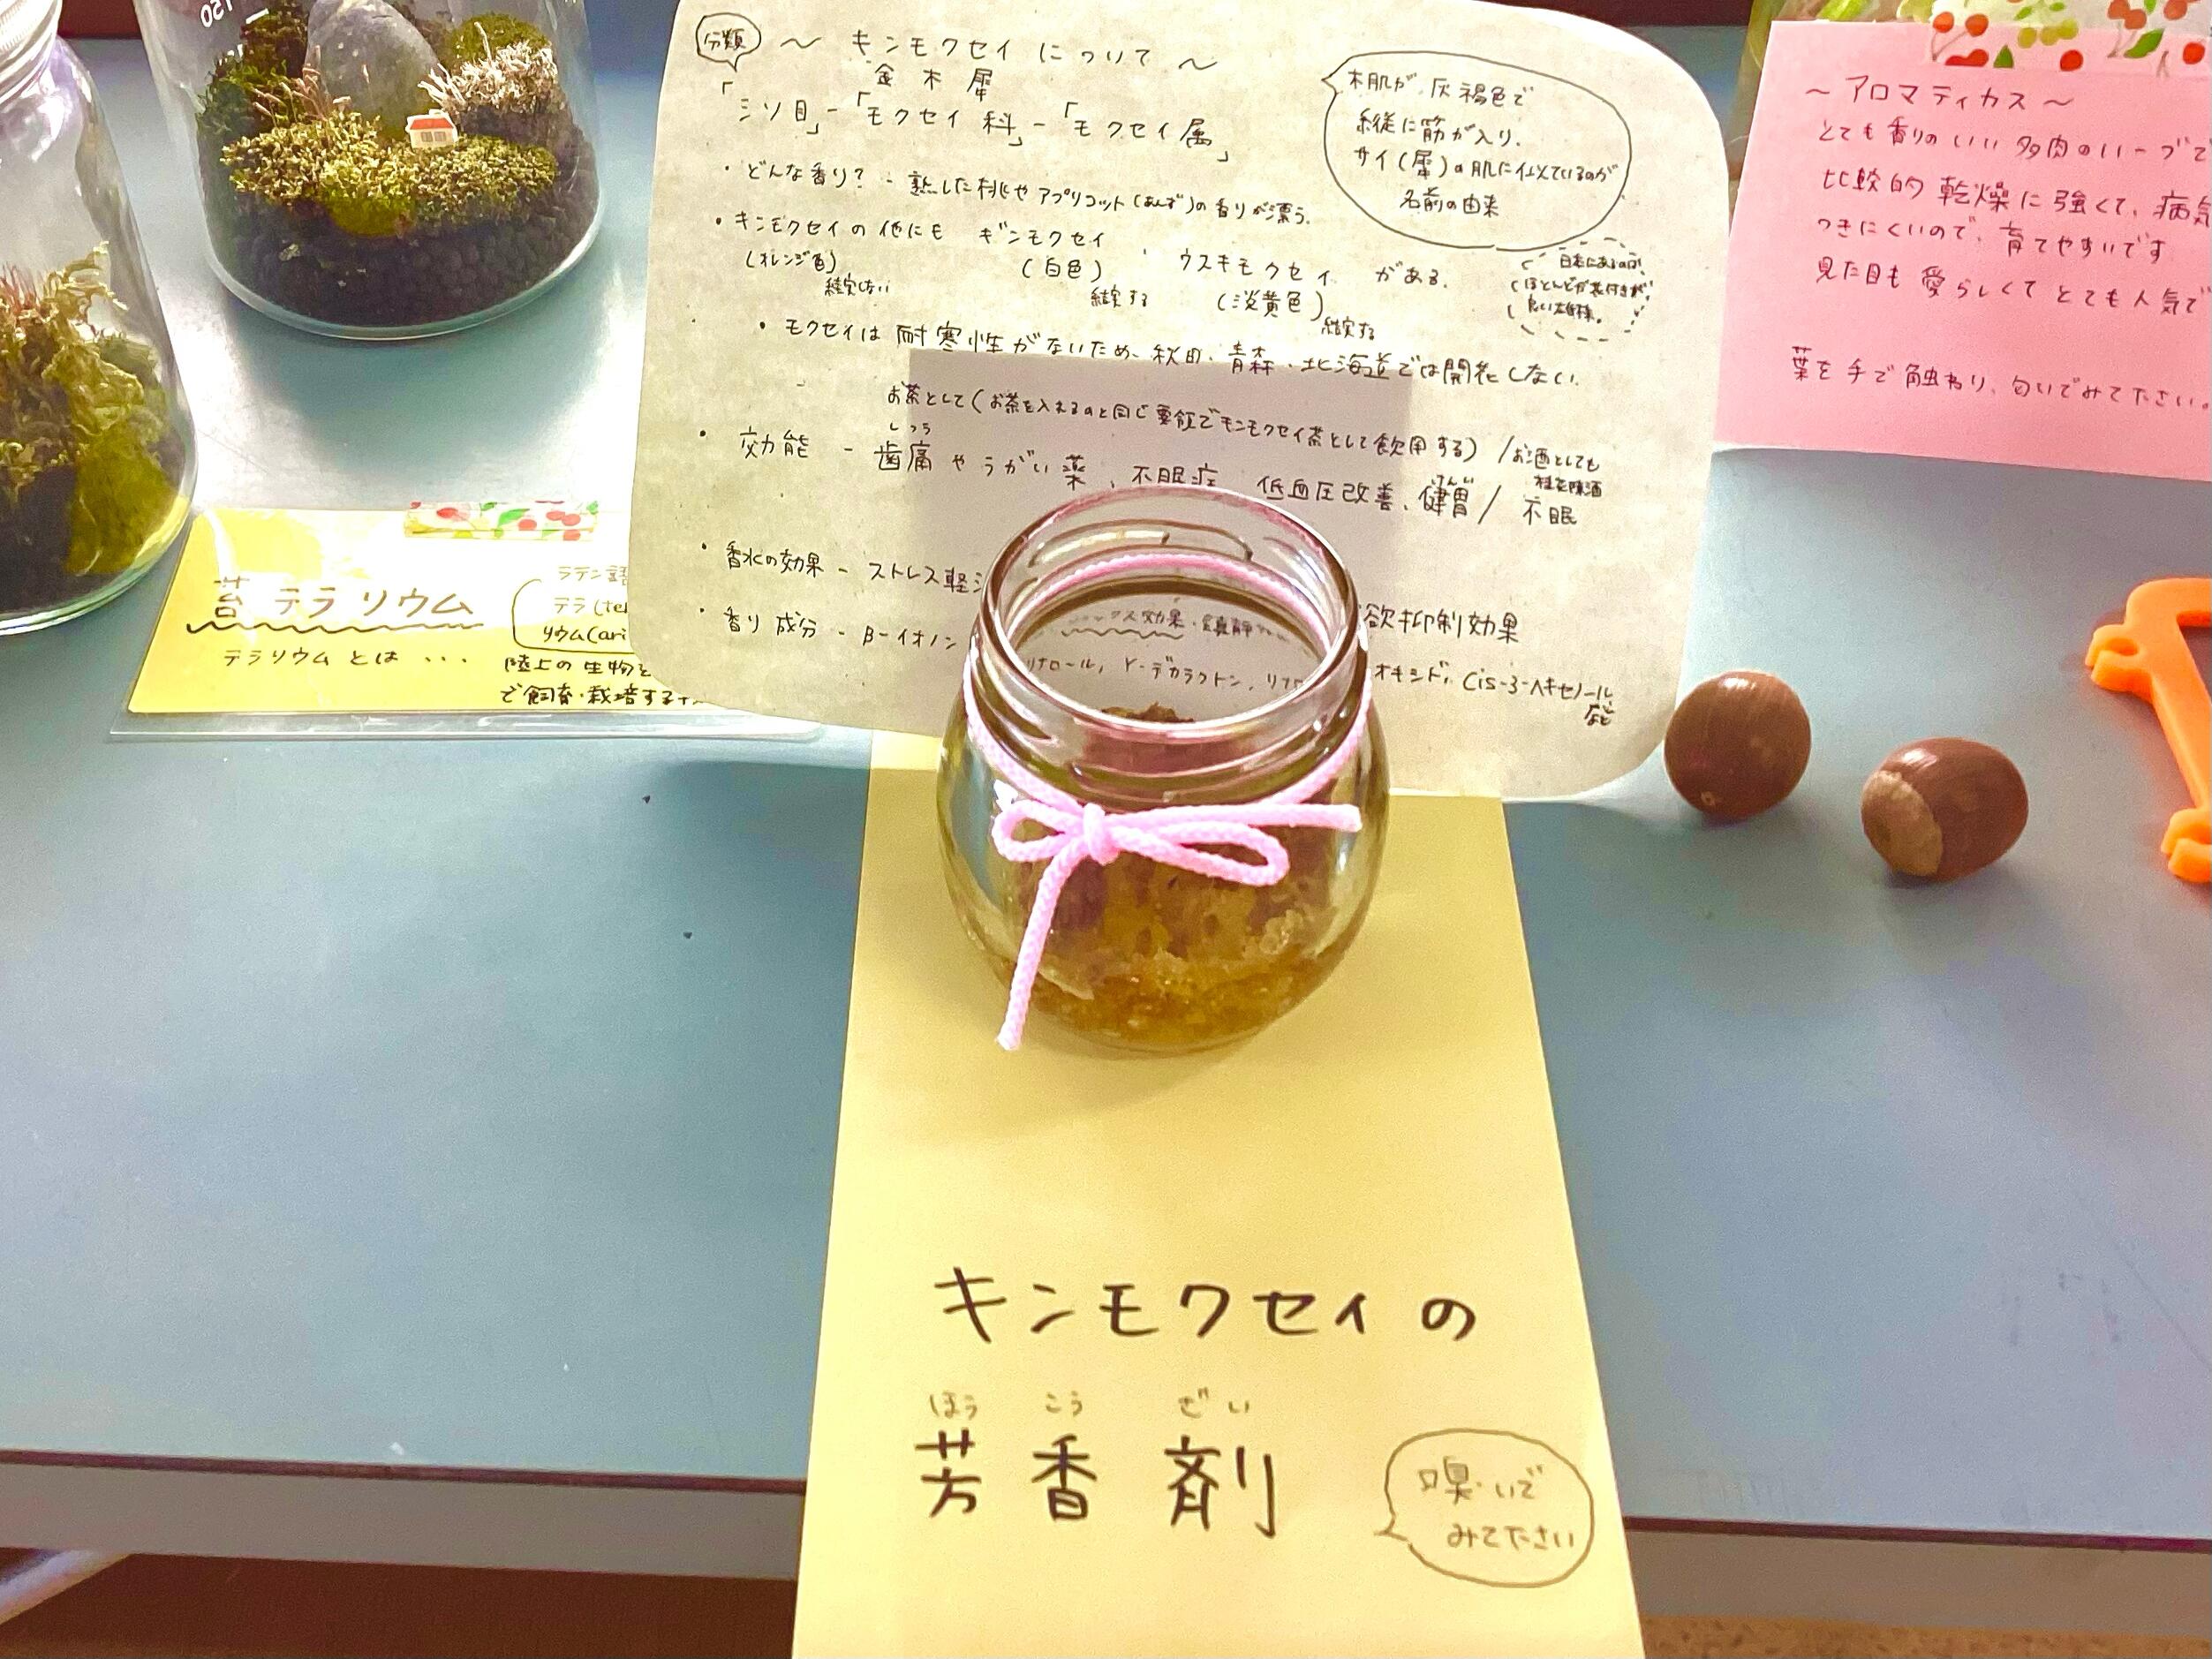 分類
〜 キンモクセイ について 〜
金木犀
「シソ目」-「モクセイ科」-「モクセイ属」
木肌が、灰褐色で
縦に筋が入り、
サイ(犀)の肌に似ているのが
名前の由来
・どんな香り? - 熟した桃やアプリコット(あんず)の香りが漂う。
・キンモクセイの他にも ギンモクセイ、ウスキモクセイ がある。
(オレンジ色) (白色) (淡黄色)
結実しない 結実する 結実する
日本にあるのは、
ほとんどが花付きが
良い雄株。
・モクセイは耐寒性がないため、秋田、青森、北海道では開花しない。
お茶として(お茶を入れるのと同じ要領でキンモクセイ茶として飲用する) /お酒としても
桂花陳酒
しつう
・効能 - 歯痛やうがい薬、不眠症、低血圧改善、健胃/ 不眠
けんい
・香水の効果 - ストレス軽
ックス効果・鎮静
欲抑制効果
・香り成分 - β-イオノン
リナロール, γ-デカラクトン, リナ
オキシド, Cis-3-ヘキセノール
など
〜 アロマティカス 〜
とても香りのいい多肉のハーブで
比較的乾燥に強くて、病気
つきにくいので、育てやすいです
見た目も愛らしくてとても人気で
葉を手で触わり、匂いでみてださい。
苔テラリウム
ラテン語
テラ(te
リウム(ari
テラリウムとは・・・ 陸上の生物を
で飼育・栽培する
キンモクセイの
ほう こう ざい
芳香剤
嗅いで
みてださい